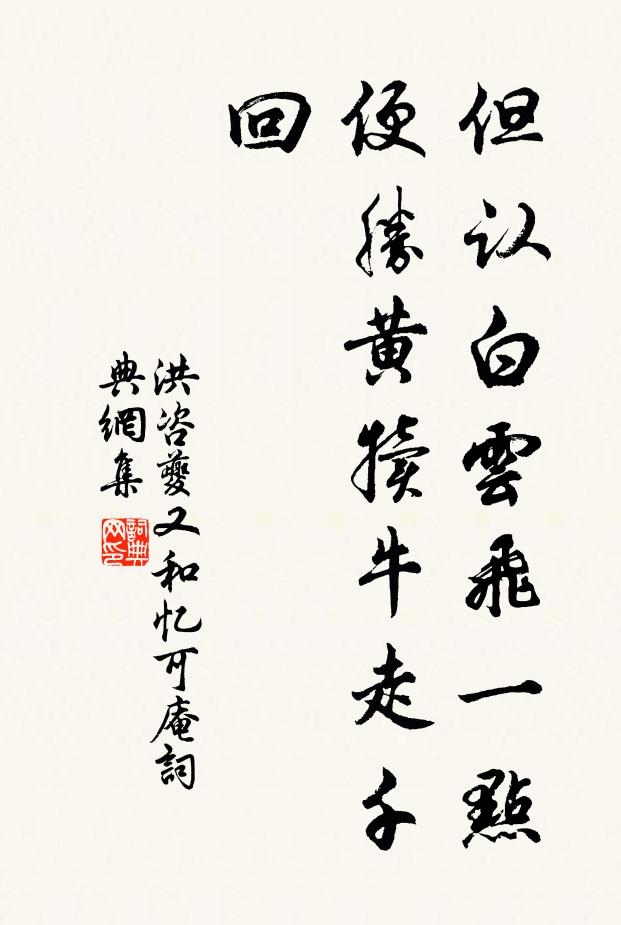 但认白雲飛一點
便勝黃犢牛走千
回
洪咨夔又和忆可庵詞
典網集
詞典网印